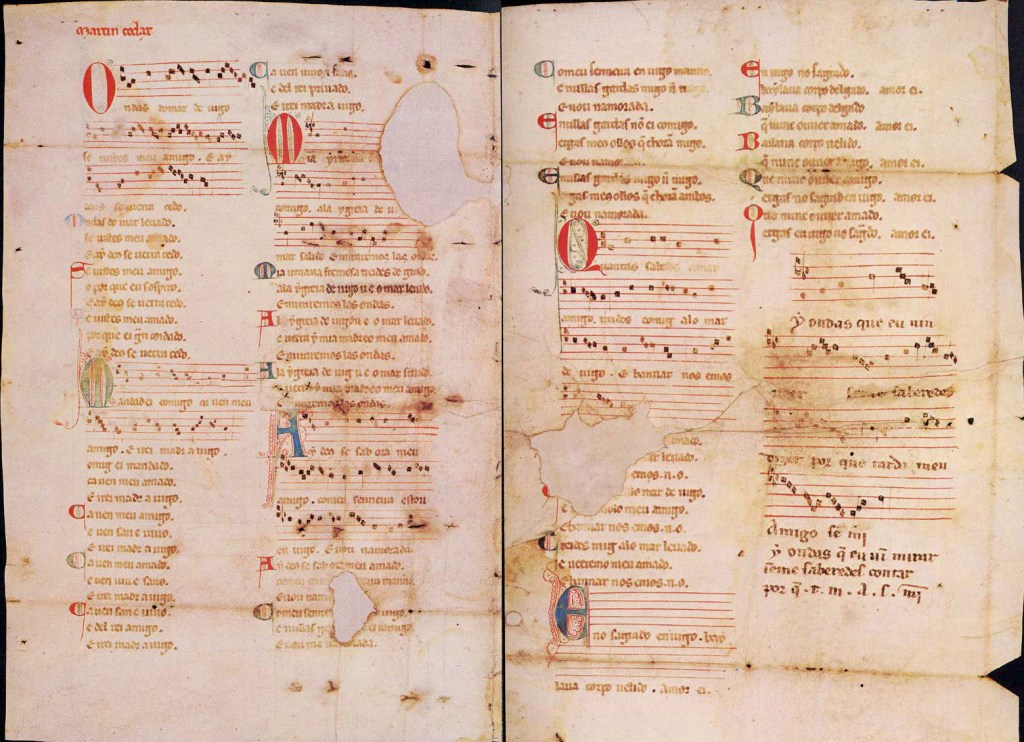 martin codax
Ondas do mar de uigo
se uistes meu amigo. E ay
deus se uerra cedo.
Ondas do mar leuado.
se uistes meu amado.
E ay deo se uerra cedo.
Se uistes meu amigo.
o por que eu sospiro.
E ay deo se uerra cedo.
Se uistes meu amado.
por que ei gran coidado.
E ay deo se uerra cedo.
Mandad ei comigo ca uen meu
amigo. E irei madr a uigo.
comig ei mandado.
ca uen meu amado.
E irei madr a uigo.
Ca uen meu amigo.
e uen san e uiuo.
E irei madr a uigo.
Ca uen meu amado.
e uen uiu e sano.
E irei madr a uigo.
Ca uen san e uiuo.
e del rei amigo.
E irei madr a uigo.
Ca uen uiuo e sano.
e del rei priuado.
E irei madr a uigo.
Mia yrmana
comigo. ala ygreia de u
mar salido E miraremos las ondas.
Mia irmana fremosa treides de grado.
ala ygreia de uigo u e o mar leuado.
E miraremos las ondas.
A la ygreia de uigo u e o mar leuado.
e uerra y mia madre e meu amado.
E miraremos las ondas.
A la ygreia de uig u e o mar salido.
e uerra y mia madre e meu amigo.
E miraremos las ondas.
Ay deo se sab ora meu
amigo. comeu senneira estou
en uigo. E uou namorada.
Ay deo se sab ora meu amado.
comeu en uigo senneira manno.
E uou namorada.
Comeu senneira
e nullas gardas ei comigo.
E uou namorada.
Comeu senneira en uigo manno.
e nullas gardas migo n trago.
E uou namorada.
E nullas gardas nō ei comigo.
ergas meus ollos q̄ chorā migo.
E uou namorada.
E nullas gardas migo n trago.
ergas meus ollos q̄ chorā ambos.
E uou namorada.
Quantas sabedes amar
amigo. treides comig alo mar
de uigo. E bannar nos emos
amado.
mar leuado.
emos.n.o.
alo mar de uigo.
meu amigo.
E bannar nos emos.n.o.
Treides mig alo mar leuado.
e ueeremo meu amado.
E bannar nos emos.n.o.
Eno sagrado en uigo. bay
laua corpo uelido. amor ei.
En uigo no sagrado.
baylaua corpo delgado. amor ei.
Baylaua corpo delgado
q̄ nunc ouuer amado. amor ei.
Bailaua corpo uelido.
q̄ nunc ouuer amigo. amor ei.
Que nunc ouuer amigo.
ergas no sagrad en uigo. amor ei.
Que nunc ouuer amado.
ergas en uigo no sagrado. amor ei.
Ay ondas que eu uin
ueer se me saberedes
dizer por que tarda meu
Amigo sē mī
Ay ondas q̄ eu uī mirar
se me saberedes contar
por q̄ .t. m. A. s. mī